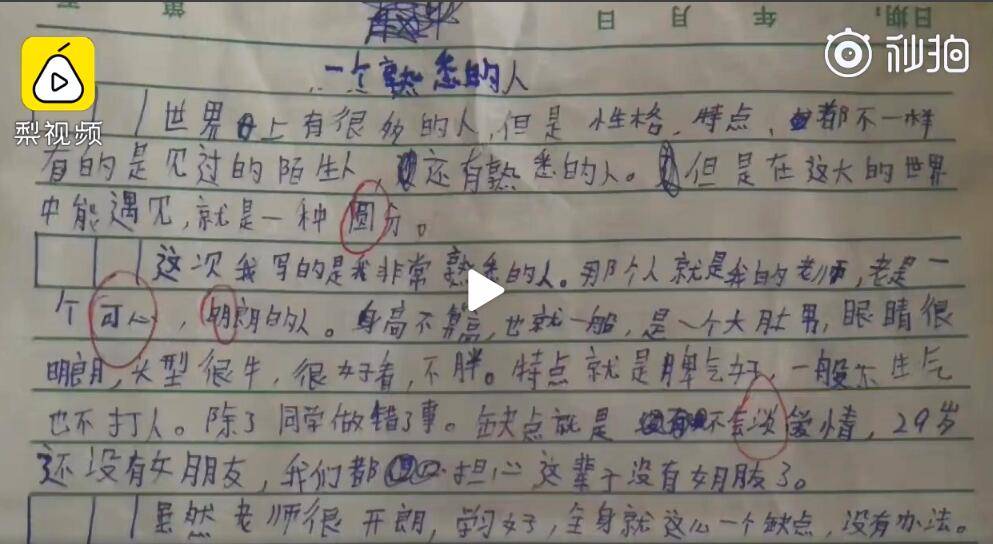 日期: 年 月 日 第 页
秒拍
梨视频
一个熟悉的人
世界上有很多的人,但是性格、特点、都不一样
有的是见过的陌生人,还有熟悉的人。但是在这大的世界
中能遇见,就是一种圆分。
这次我写的是我非常熟悉的人。那个人就是我的老师,老是一
个可心,明朗的人。身高不算高,也就一般,是一个大肚男,眼睛很
明朗,大型很牛,很好看,不胖。特点就是脾气好,一般不生气
也不打人。除了同学做错了事。缺点就是不会谈爱情,29岁
还没有女朋友,我们都担心这辈子没有女朋友了。
虽然老师很开朗,学习好,全身就这么一个缺点,没有办法。